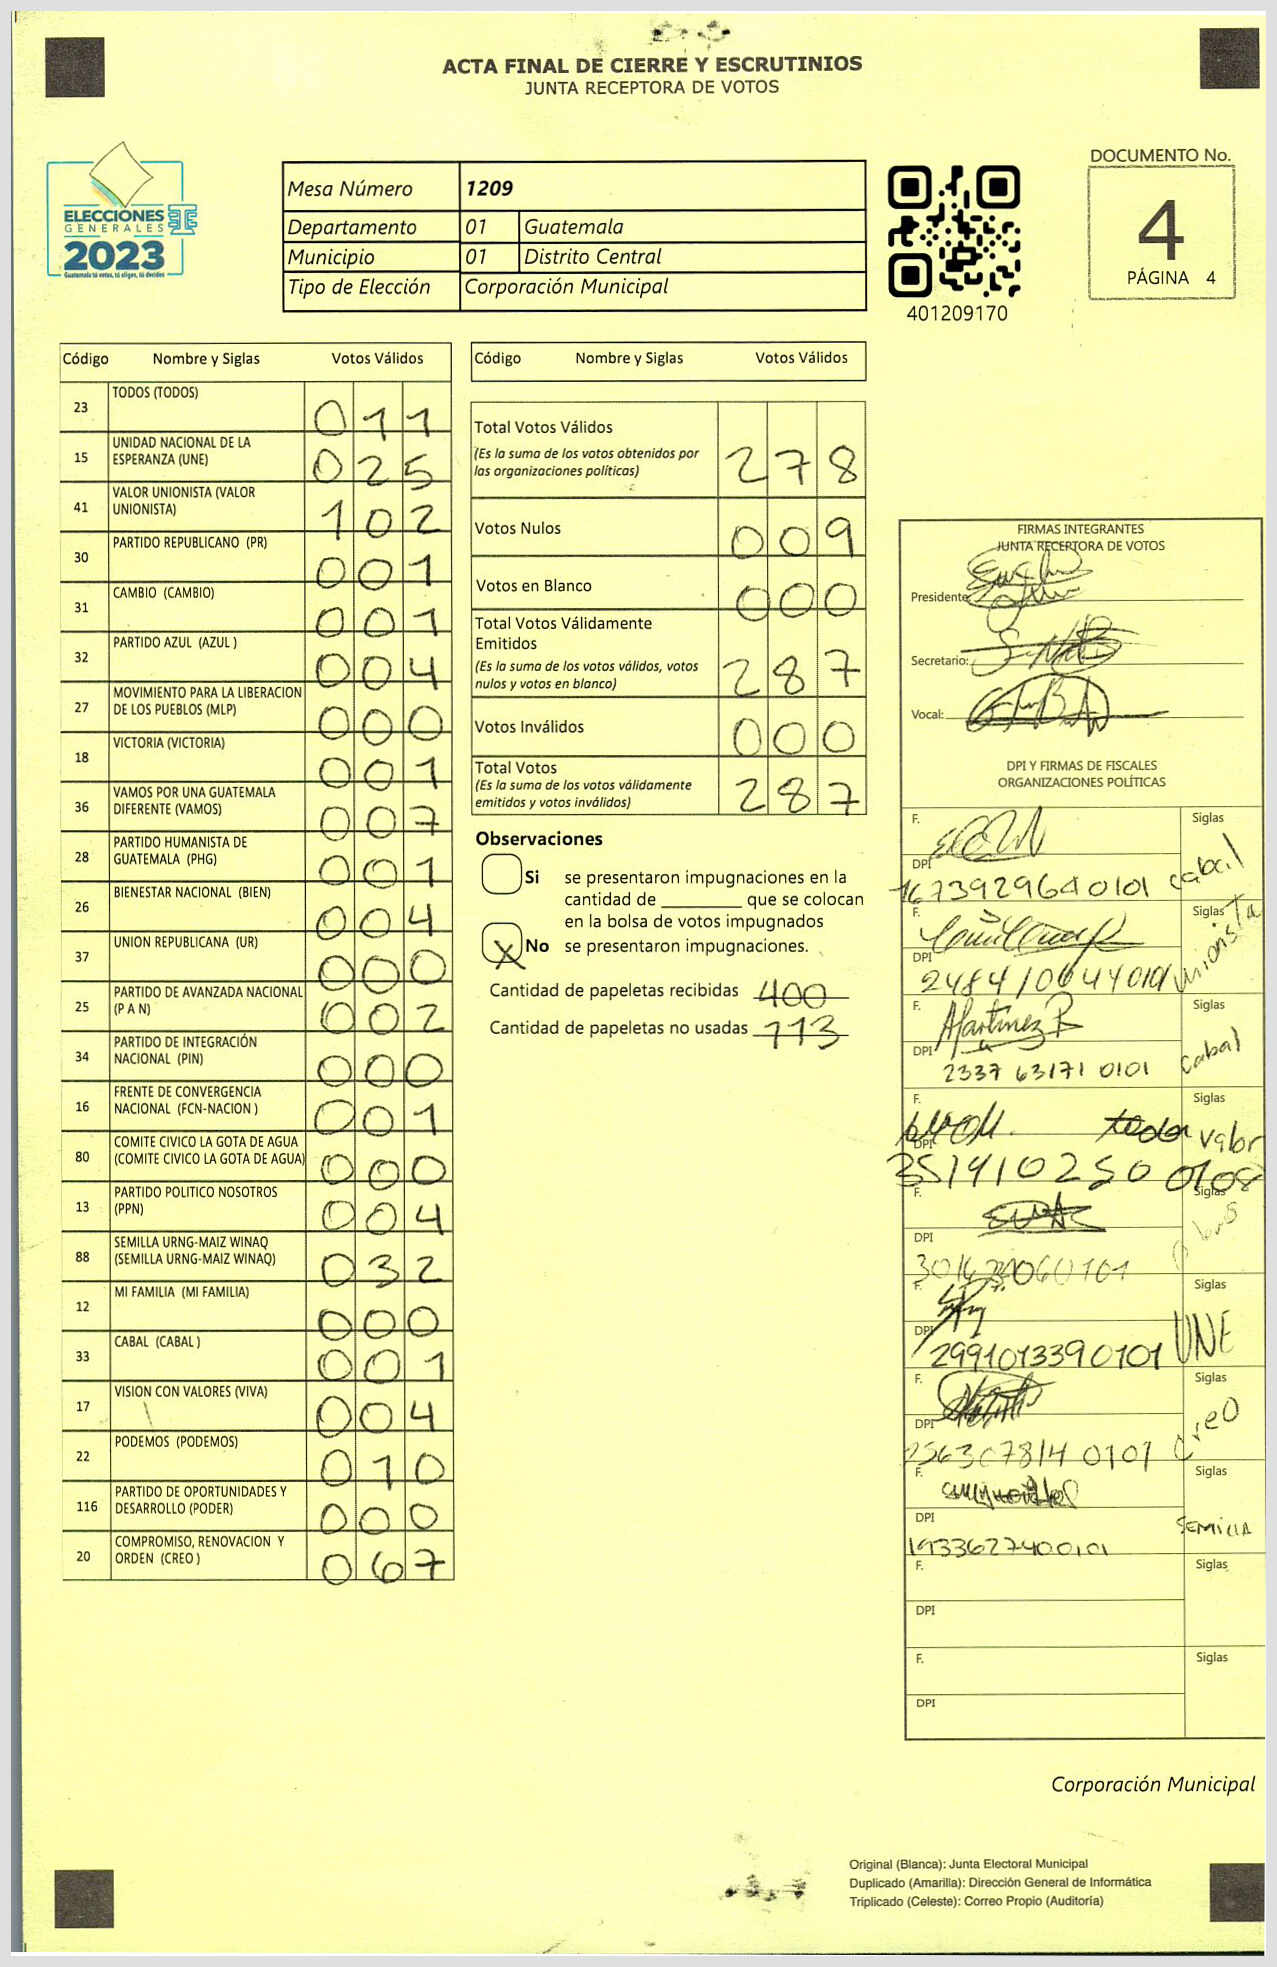 ACTA FINAL DE CIERRE Y ESCRUTINIOS
JUNTA RECEPTORA DE VOTOS
ELECCIONES
GENERALES
2023
Guatemala tú votas, tú eliges, tú decides
Mesa Número 1209
Departamento 01 Guatemala
Municipio 01 Distrito Central
Tipo de Elección Corporación Municipal
401209170
DOCUMENTO No.
4
PÁGINA 4
Código Nombre y Siglas Votos Válidos
23 TODOS (TODOS) 011
15 UNIDAD NACIONAL DE LA
ESPERANZA (UNE) 025
41 VALOR UNIONISTA (VALOR
UNIONISTA) 102
30 PARTIDO REPUBLICANO (PR) 001
31 CAMBIO (CAMBIO) 001
32 PARTIDO AZUL (AZUL ) 004
27 MOVIMIENTO PARA LA LIBERACION
DE LOS PUEBLOS (MLP) 000
18 VICTORIA (VICTORIA) 001
36 VAMOS POR UNA GUATEMALA
DIFERENTE (VAMOS) 007
28 PARTIDO HUMANISTA DE
GUATEMALA (PHG) 001
26 BIENESTAR NACIONAL (BIEN) 004
37 UNION REPUBLICANA (UR) 000
25 PARTIDO DE AVANZADA NACIONAL
(P A N) 002
34 PARTIDO DE INTEGRACIÓN
NACIONAL (PIN) 000
16 FRENTE DE CONVERGENCIA
NACIONAL (FCN-NACION ) 001
80 COMITE CIVICO LA GOTA DE AGUA
(COMITE CIVICO LA GOTA DE AGUA) 000
13 PARTIDO POLITICO NOSOTROS
(PPN) 004
88 SEMILLA URNG-MAIZ WINAQ
(SEMILLA URNG-MAIZ WINAQ) 032
12 MI FAMILIA (MI FAMILIA) 000
33 CABAL (CABAL ) 001
17 VISION CON VALORES (VIVA) 004
22 PODEMOS (PODEMOS) 010
116 PARTIDO DE OPORTUNIDADES Y
DESARROLLO (PODER) 000
20 COMPROMISO, RENOVACION Y
ORDEN (CREO ) 067
Código Nombre y Siglas Votos Válidos
Total Votos Válidos
(Es la suma de los votos obtenidos por
las organizaciones políticas) 278
Votos Nulos 009
Votos en Blanco 000
Total Votos Válidamente
Emitidos
(Es la suma de los votos válidos, votos
nulos y votos en blanco) 287
Votos Inválidos 000
Total Votos
(Es la suma de los votos válidamente
emitidos y votos inválidos) 287
Observaciones
Si se presentaron impugnaciones en la
cantidad de ________ que se colocan
en la bolsa de votos impugnados
X No se presentaron impugnaciones.
Cantidad de papeletas recibidas 400
Cantidad de papeletas no usadas 113
FIRMAS INTEGRANTES
JUNTA RECEPTORA DE VOTOS
Presidente:
Secretario:
Vocal:
DPI Y FIRMAS DE FISCALES
ORGANIZACIONES POLÍTICAS
F. Siglas
DPI cabal
1673929640101
F. Siglas
DPI unionista
2484100440101
F. Siglas
AMartinez
DPI cabal
2337 63171 0101
F. Siglas
DPI valor
3519102500108
F. Siglas
DPI
F. Siglas
DPI UNE
2991013390101
F. Siglas
DPI creo
2563078140101
F. Siglas
DPI SEMILLA
1933627400101
F. Siglas
DPI
F. Siglas
DPI
Corporación Municipal
Original (Blanca): Junta Electoral Municipal
Duplicado (Amarilla): Dirección General de Informática
Triplicado (Celeste): Correo Propio (Auditoría)